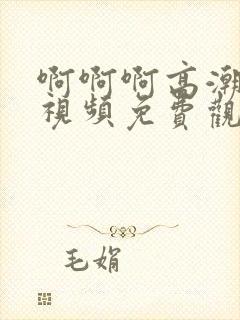 啊啊啊高潮
視頻免費觀
毛娟